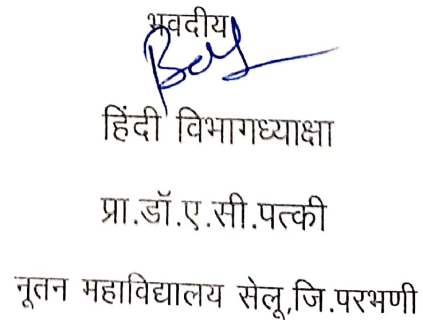 भवदीय
हिंदी विभागध्याक्षा
प्रा.डॉ.ए.सी.पत्की
नूतन महाविद्यालय सेलू,जि.परभणी